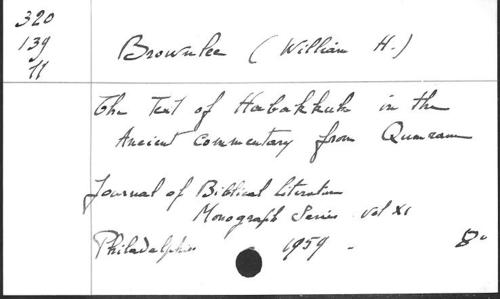 320
139
11
Brownlee (William H.)
The Text of Habakkuk in the
Ancient Commentary from Qumran
Journal of Biblical Literature
Monograph Series vol XI
Philadelphia 1959 - 8°